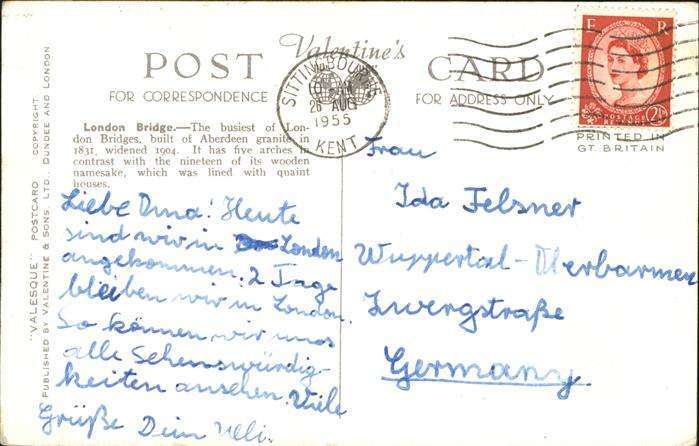 Valentine's
POST CARD
FOR CORRESPONDENCE
FOR ADDRESS ONLY
SITTINGBOURNE
28 AUG
1955
KENT
E R
POSTAGE
PRINTED IN
GT. BRITAIN
London Bridge.—The busiest of Lon-
don Bridges, built of Aberdeen granite in
1831, widened 1904. It has five arches in
contrast with the nineteen of its wooden
namesake, which was lined with quaint
houses.
"VALESQUE" POSTCARD COPYRIGHT
PUBLISHED BY VALENTINE & SONS, LTD., DUNDEE AND LONDON
Liebe Oma! Heute
sind wir in London
angekommen. 2 Tage
bleiben wir in London.
So können wir uns
alle Sehenswürdig-
keiten ansehen. Viele
Grüße Dein Ulli.
Frau
Ida Felsner
Wuppertal-Oberbarmen
Zwergstraße
Germany.